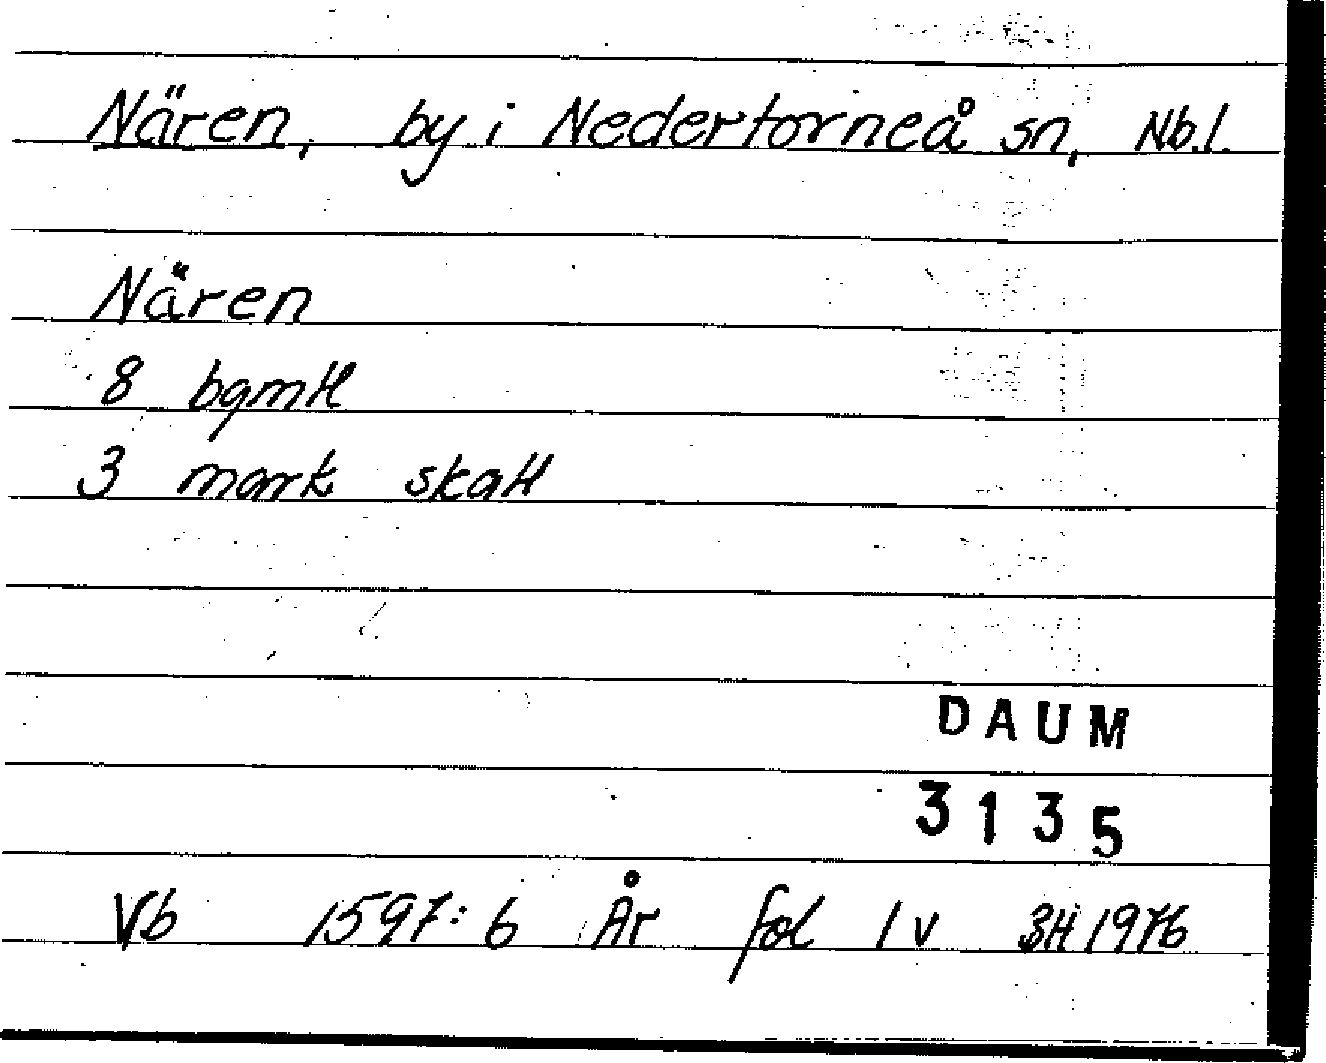 Nären, by i Nedertorneå sn, Nb.l.
Nären
8 bgmtl
3 mark skatt
DAUM
3135
Vb 1597:6 År fol 1v 1976